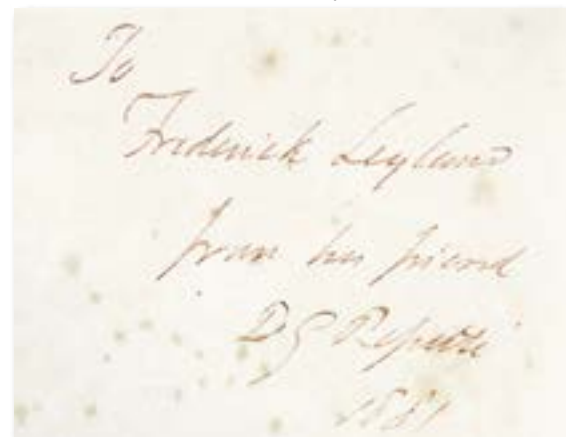 To
Frederick Leyland
from his friend
D G Rossetti
1881